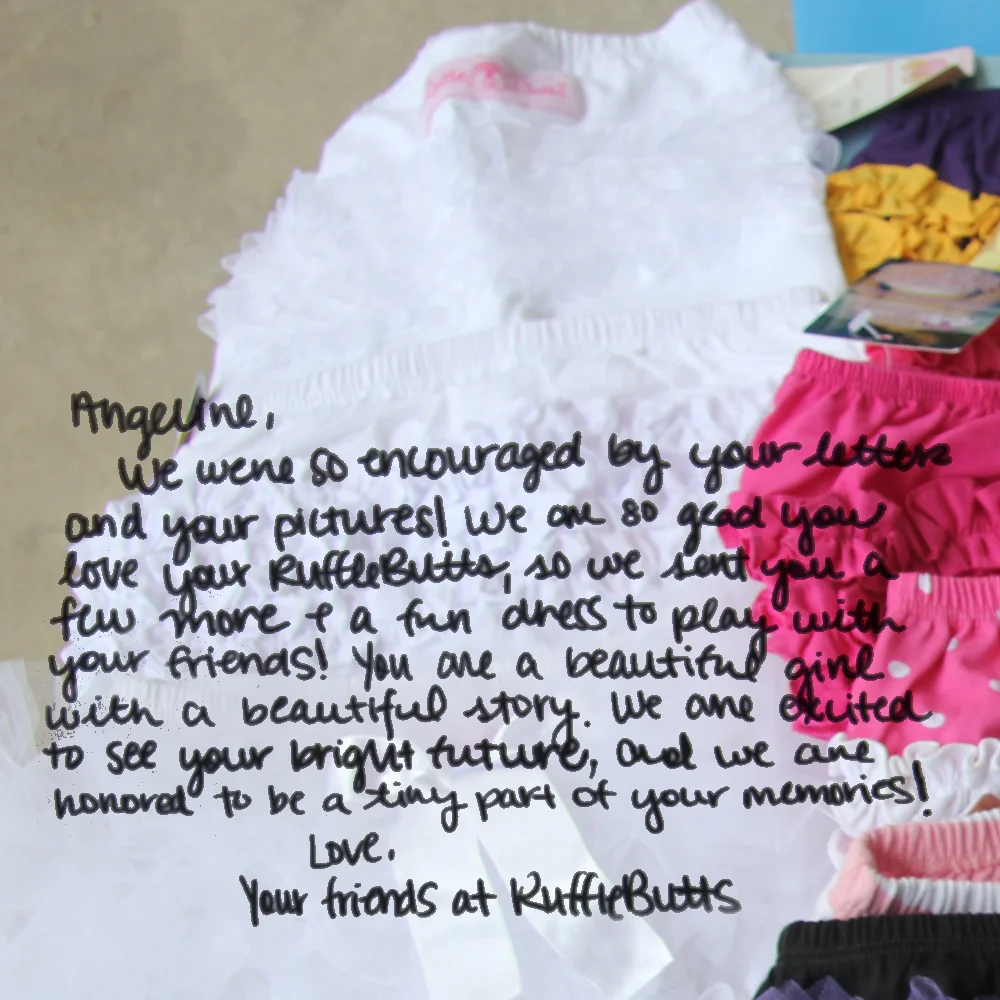 Angeline,
We were so encouraged by your letters
and your pictures! We are so glad you
love your RuffleButts, so we sent you a
few more + a fun dress to play with
your friends! You are a beautiful girl
with a beautiful story. We are excited
to see your bright future, and we are
honored to be a tiny part of your memories!
Love,
Your friends at RuffleButts